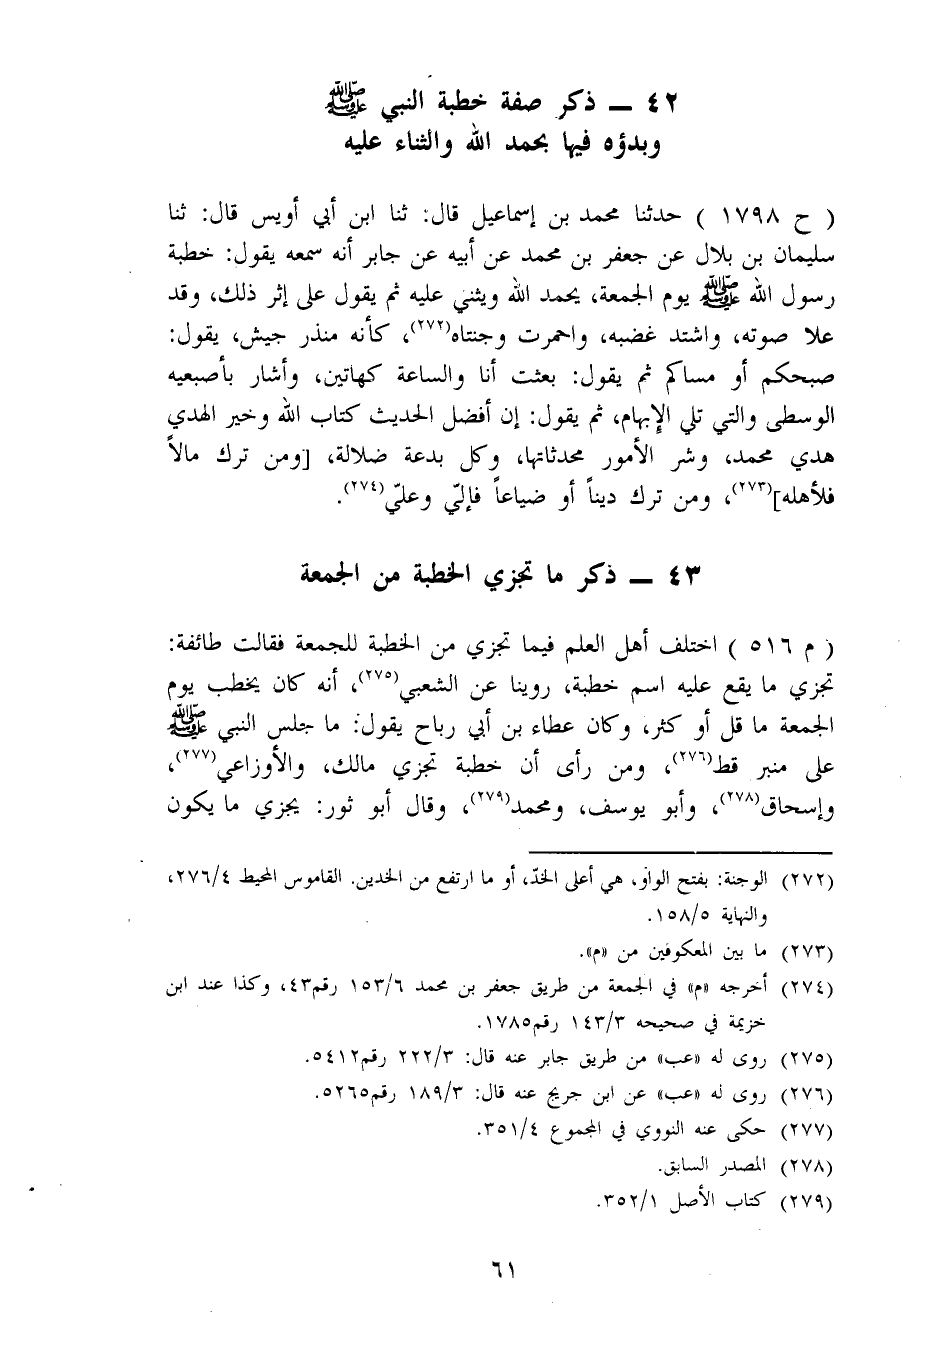 ٤٢ ــ ذكر صفة خطبة النبي ﷺ
وبدؤه فيها بحمد الله والثناء عليه
( ح ١٧٩٨ ) حدثنا محمد بن إسماعيل قال: ثنا ابن أبي أويس قال: ثنا
سليمان بن بلال عن جعفر بن محمد عن أبيه عن جابر أنه سمعه يقول: خطبة
رسول الله ﷺ يوم الجمعة، يحمد الله ويثني عليه ثم يقول على إثر ذلك، وقد
علا صوته، واشتد غضبه، واحمرت وجنتاه(٢٧٢)، كأنه منذر جيش، يقول:
صبحكم أو مساكم ثم يقول: بعثت أنا والساعة كهاتين، وأشار بأصبعيه
الوسطى والتي تلي الإبهام، ثم يقول: إن أفضل الحديث كتاب الله وخير الهدي
هدي محمد، وشر الأمور محدثاتها، وكل بدعة ضلالة، [ومن ترك مالاً
فلأهله](٢٧٣)، ومن ترك ديناً أو ضياعاً فإليّ وعليّ(٢٧٤).
٤٣ ــ ذكر ما تجزي الخطبة من الجمعة
( م ٥١٦ ) اختلف أهل العلم فيما تجزي من الخطبة للجمعة فقالت طائفة:
تجزي ما يقع عليه اسم خطبة، روينا عن الشعبي(٢٧٥)، أنه كان يخطب يوم
الجمعة ما قل أو كثر، وكان عطاء بن أبي رباح يقول: ما جلس النبي ﷺ
على منبر قط(٢٧٦)، ومن رأى أن خطبة تجزي مالك، والأوزاعي(٢٧٧)،
وإسحاق(٢٧٨)، وأبو يوسف، ومحمد(٢٧٩)، وقال أبو ثور: يجزي ما يكون
(٢٧٢) الوجنة: بفتح الواو، هي أعلى الخدّ، أو ما ارتفع من الخدين. القاموس المحيط ٢٧٦/٤،
والنهاية ١٥٨/٥.
(٢٧٣) ما بين المعكوفين من «م».
(٢٧٤) أخرجه «م» في الجمعة من طريق جعفر بن محمد ١٥٣/٦ رقم٤٣، وكذا عند ابن
خزيمة في صحيحه ١٤٣/٣ رقم١٧٨٥.
(٢٧٥) روى له «عب» من طريق جابر عنه قال: ٢٢٢/٣ رقم٥٤١٢.
(٢٧٦) روى له «عب» عن ابن جريج عنه قال: ١٨٩/٣ رقم٥٢٦٥.
(٢٧٧) حكى عنه النووي في المجموع ٣٥١/٤.
(٢٧٨) المصدر السابق.
(٢٧٩) كتاب الأصل ٣٥٢/١.
٦١